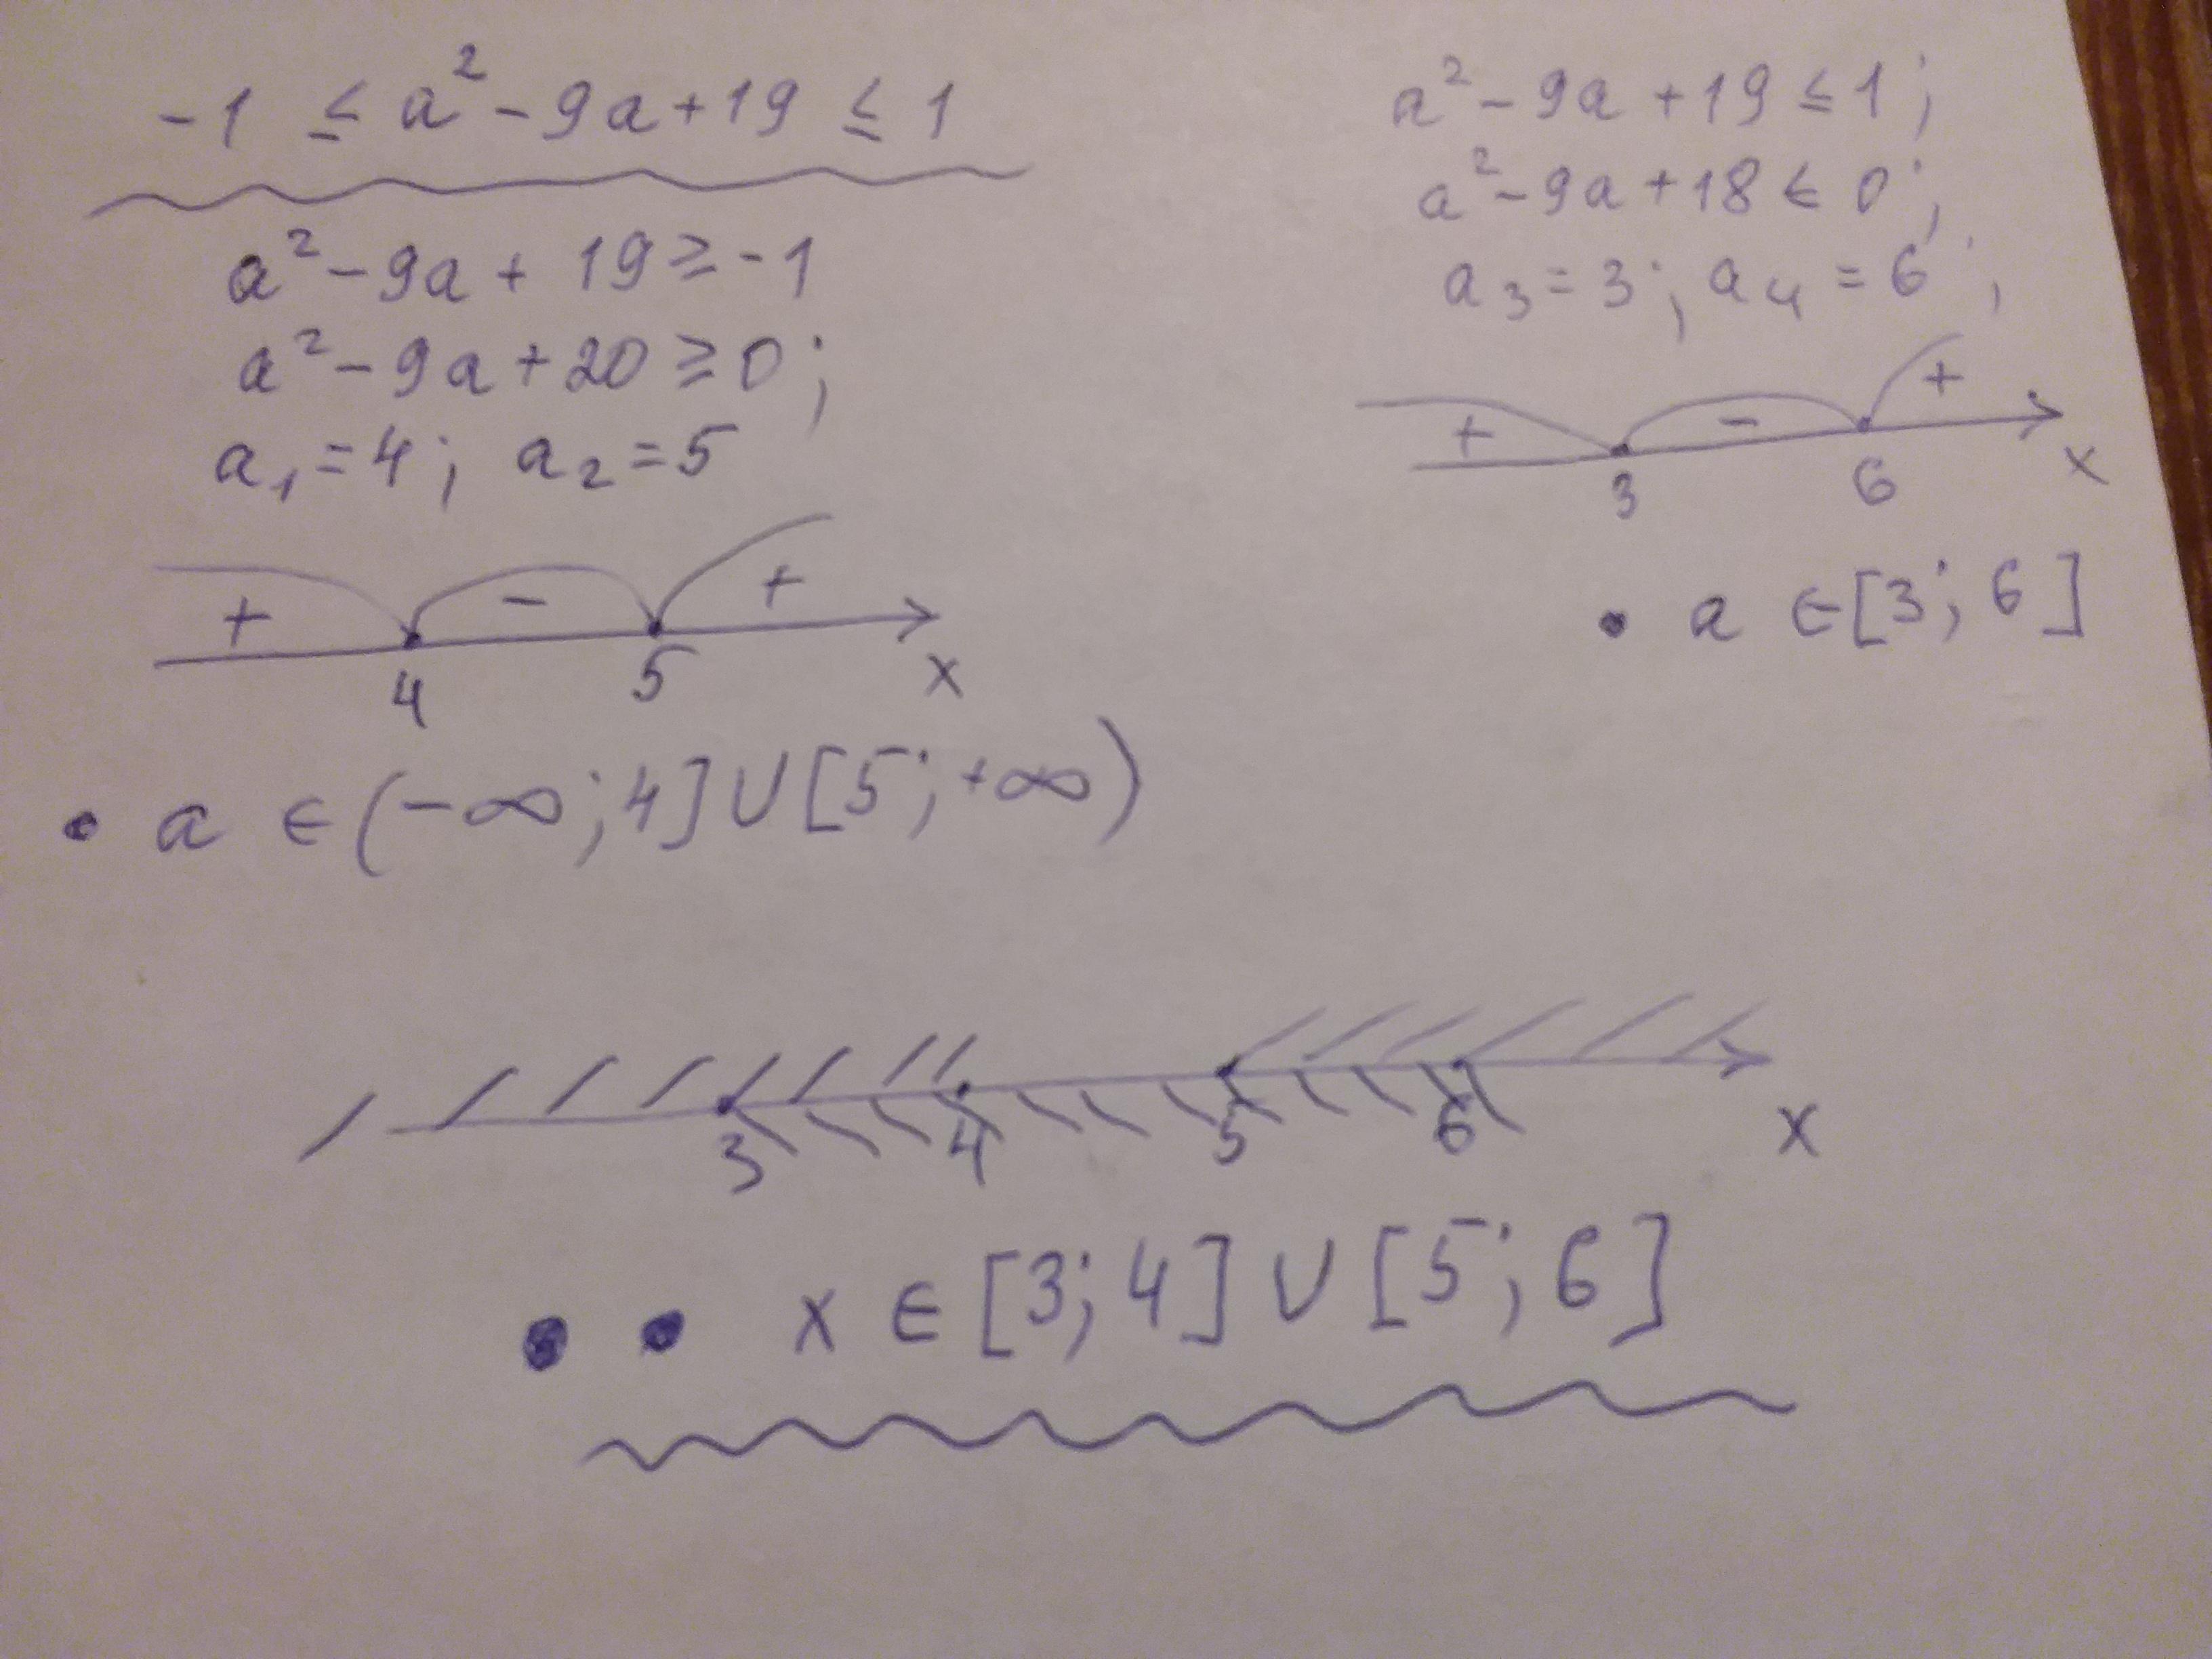 -1 ≤ a² - 9a + 19 ≤ 1
a² - 9a + 19 ≥ -1
a² - 9a + 20 ≥ 0;
a₁ = 4; a₂ = 5
+ - +
4 5 x
• a ∈ (-∞; 4] ∪ [5; +∞)
a² - 9a + 19 ≤ 1;
a² - 9a + 18 ≤ 0;
a₃ = 3; a₄ = 6;
+ - +
3 6 x
• a ∈ [3; 6]
3 4 5 6 x
• • x ∈ [3; 4] ∪ [5; 6]